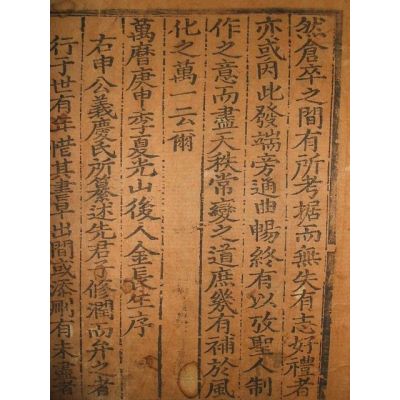 然倉卒之間有所考據而無失有志好禮者
亦或因此發端旁通曲暢終有以攷聖人制
作之意而盡天秩常變之道庶幾有補於風
化之萬一云爾
萬曆庚申季夏光山後人金長生序
右申公義慶氏所纂述先君子修潤而弁之者
行于世有年惜其書草出間或添刪有未盡者